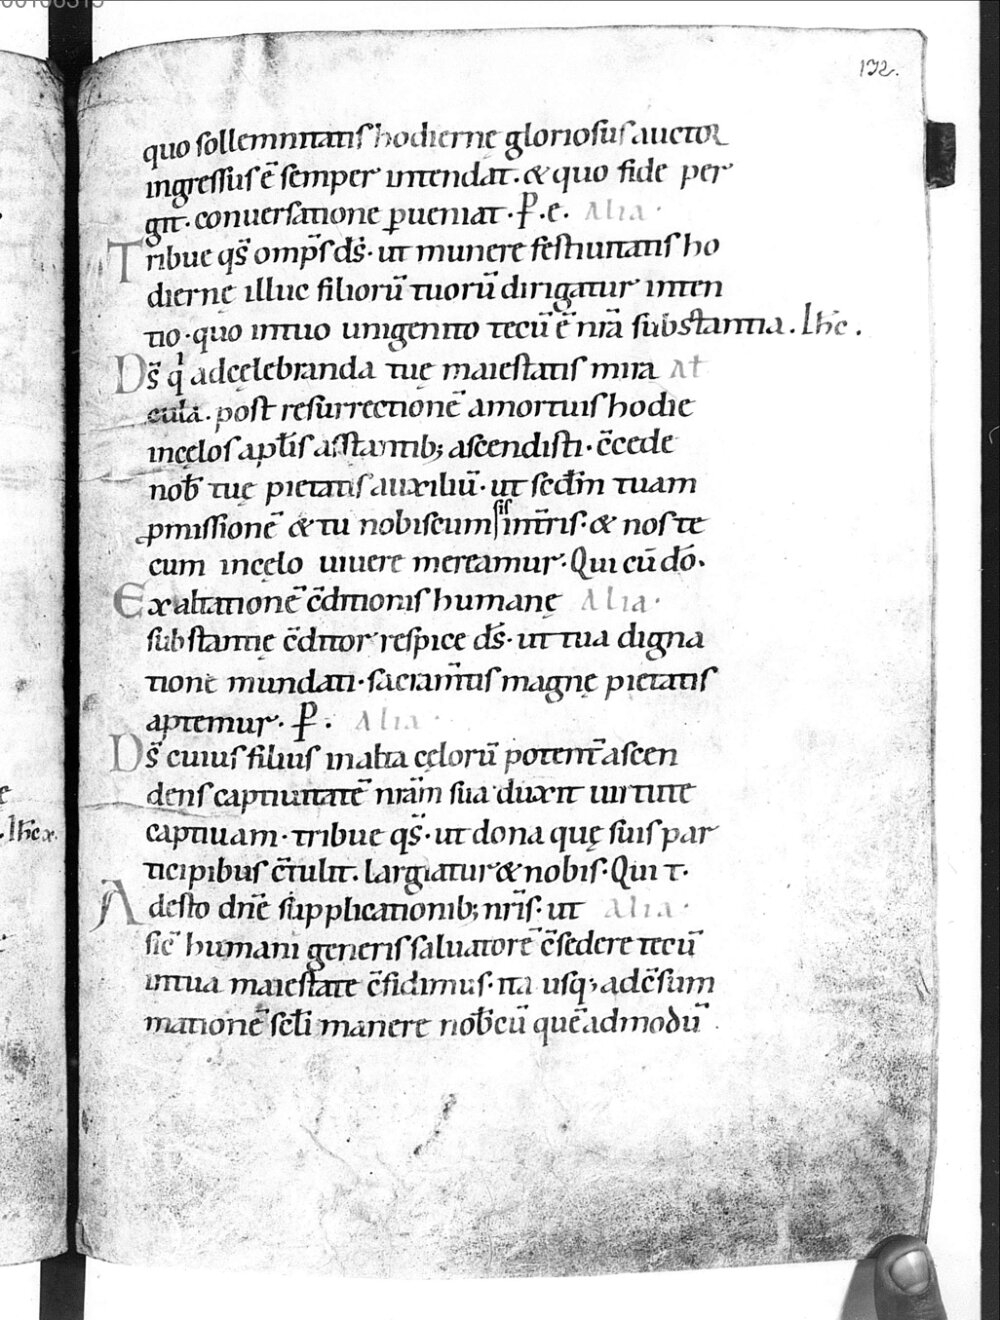 132.
quo sollemnitatis hodierne gloriosus auctor
ingressus ē semper intendat. & quo fide per
git. conuersatione ꝑueniat. P. e. Alia.
Tribue qs̄ omps̄ ds̄. ut munere festiuitatis ho
dierne illuc filiorū tuorū dirigatur inten
tio. quo in tuo unigenito tecū ē nr̄a substantia. Ihc.
Ds̄ qͥ ad cęlebranda tuę maiestatis mira Al
cula. post resurrectionē a mortuis hodie
in cęlos apłis astantib; ascendisti. c̄cede
nob̄ tuę pietatis auxiliū. ut scdm̄ tuam
ꝓmissionē & tu nobiscum sis in tr̄is. & nos te
cum in cęlo uiuere mereamur. Qui cū dō.
Exaltationē c̄ditionis humanę Alia.
substantię c̄ditor respice ds̄. ut tua digna
tione mundati. sacram̄tis magnę pietatis
aptemur. P. Alia.
Ds̄ cuius filius in alta cęlorū potent̄ ascen
dens captiuitatē nr̄am sua duxit uirtute
captiuam. tribue qs̄. ut dona quę suis par
ticipibus c̄tulit. largiatur & nobis. Qui t.
Adesto dn̄e supplicationib; nr̄is. ut Alia.
sic̄ humani generis saluatorē c̄sedere tecū
in tua maiestate c̄fidimus. ita usq; ad c̄sum
mationē scłi manere nob̄cū quēadmodū.
Ihc x.